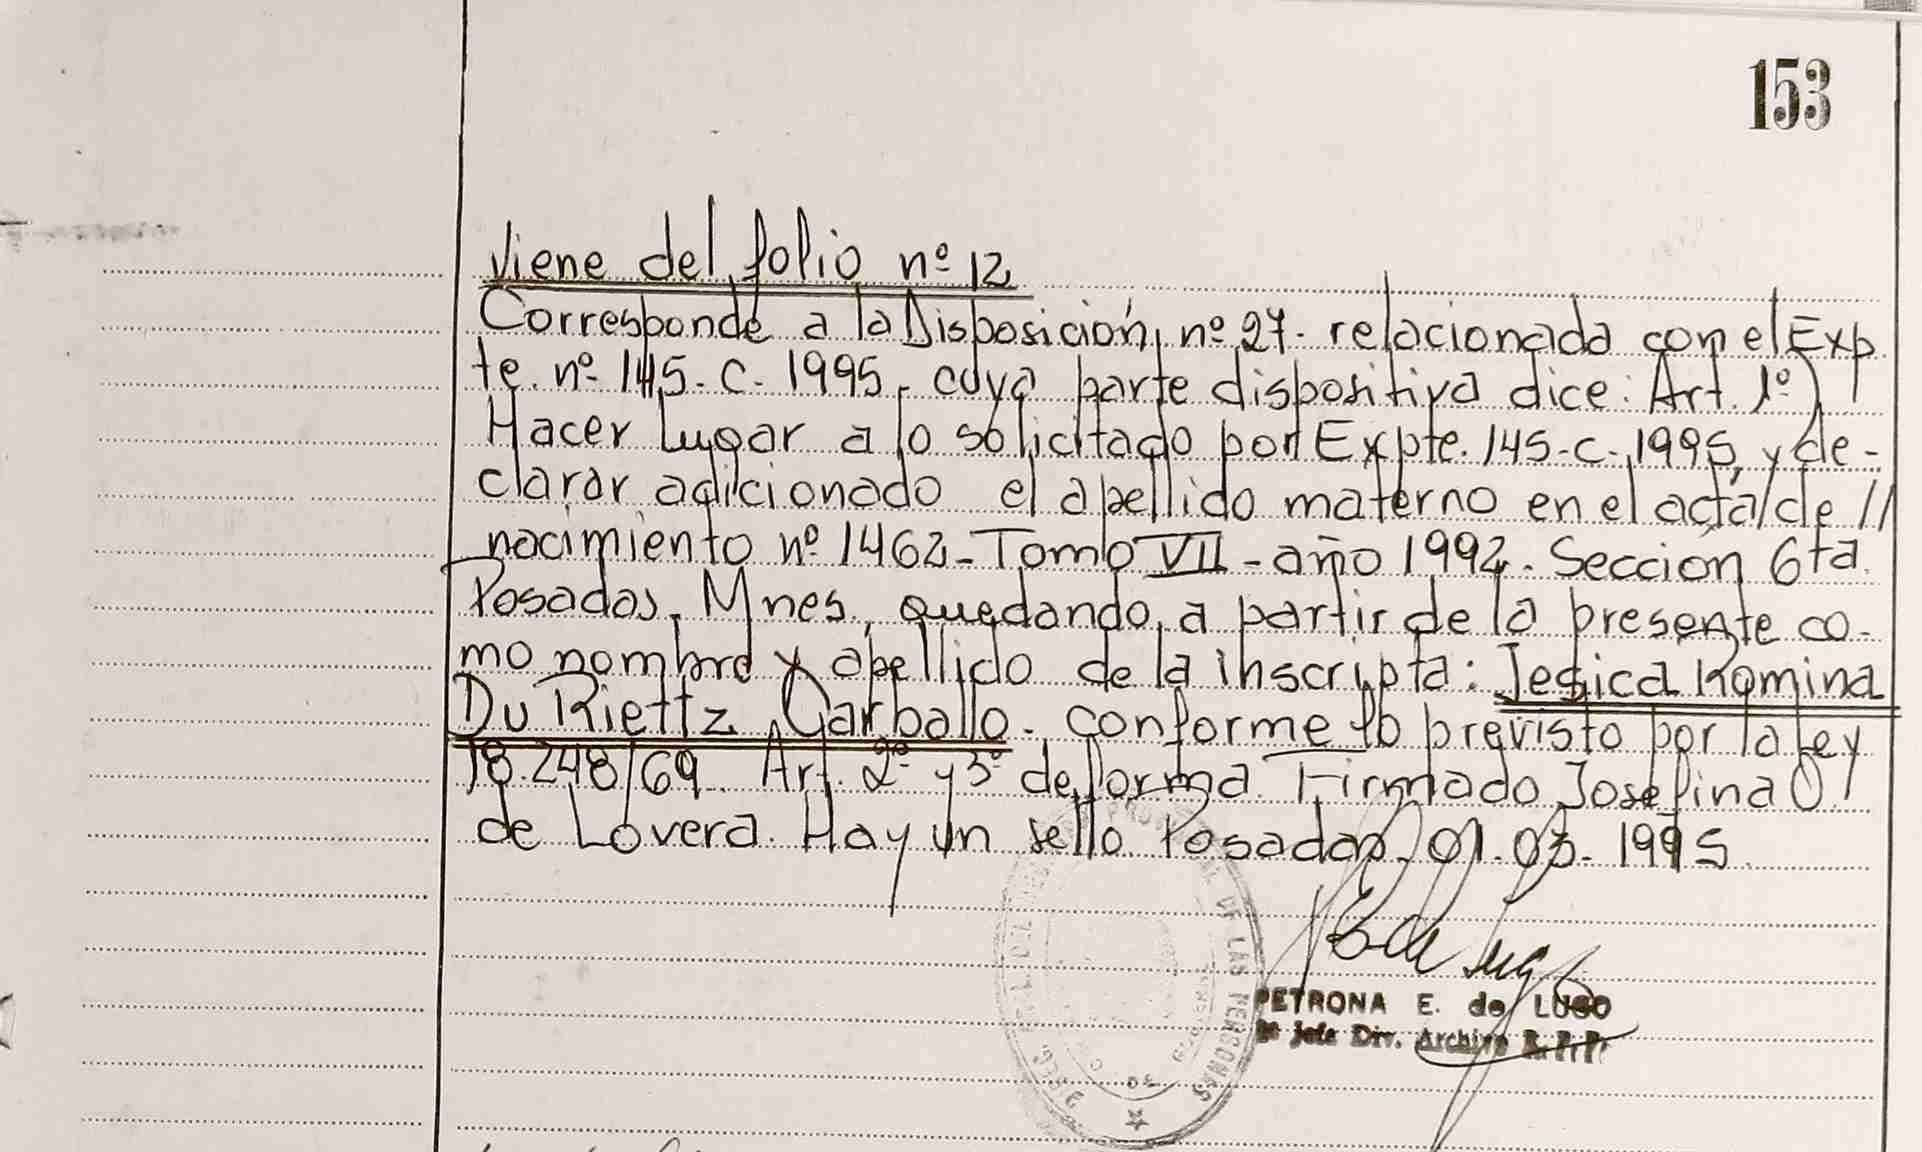 153
Viene del folio nº 12
Corresponde a la Disposición nº 27. relacionada con el Exp.
te. nº 145-C-1995, cuya parte dispositiva dice: Art. 1º)
Hacer lugar a lo solicitado por Expte. 145-C-1995, y de-
clarar adicionado el apellido materno en el acta de //
nacimiento nº 1462 - Tomo VII - año 1992. Sección 6ta.
Posadas, Mnes, quedando, a partir de la presente co-
mo nombre y apellido de la inscripta: Jesica Romina
Du Riettz Carballo. conforme lo previsto por la ley
18.248/69. Art. 2º y 5º de forma. Firmado Josefina O
de Lovera. Hay un sello Posadas, 01.03.1995.
DE LAS PERSONAS
PETRONA E. de LUGO
Jefe Div. Archivo R.P.P.